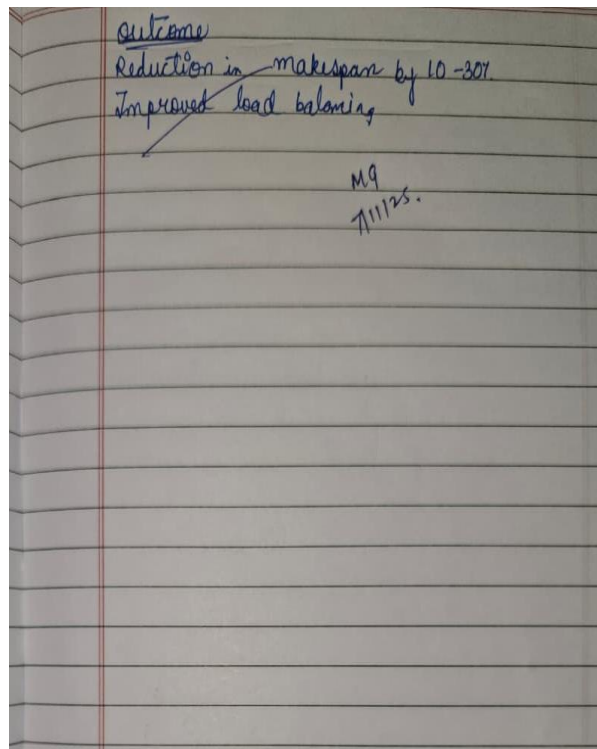 Outcome
Reduction in makespan by 10-30%.
Improved load balancing
M9
7/11/25.